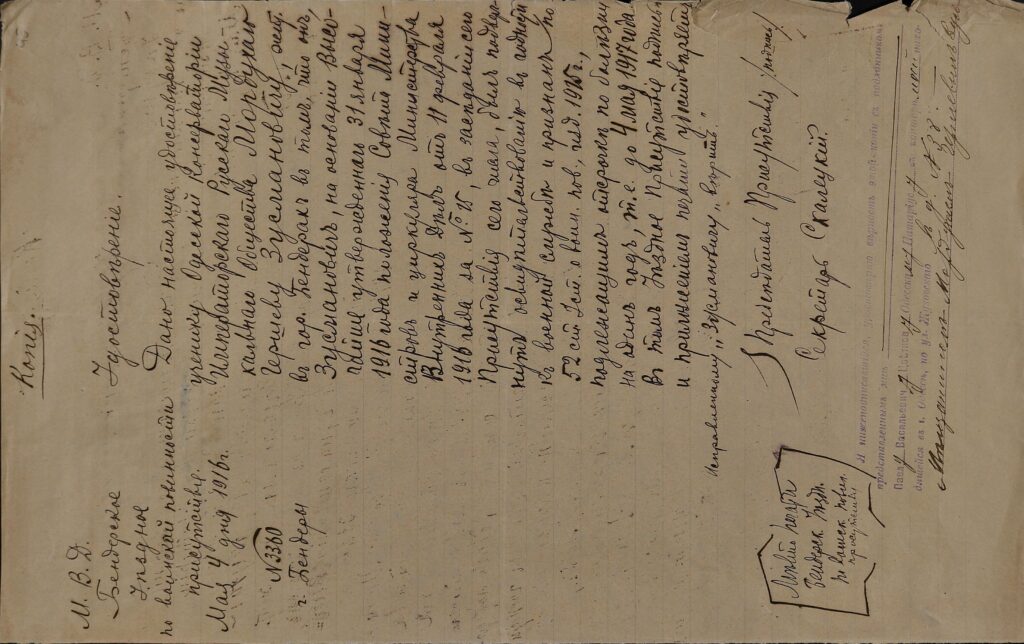 Копія.
М. В. Д.
Бендерское
Уѣздное
по воинской повинности
присутствіе.
Мая 4 дня 1916 г.
№ 3360
г. Бендеры
Удостовѣреніе.
Дано настоящее удостовѣреніе
ученику Одесской Консерваторіи
Императорскаго Русскаго Музы-
кальнаго Общества Мордушаю
Гершеву Зусмановичу,
въ гор. Бендерахъ въ томъ, что онъ,
Зусмановичъ, на основаніи Высо-
чайше утвержденнаго 31 января
1916 года положенія Совѣта Мини-
стровъ и циркуляра Министерства
Внутреннихъ Дѣлъ отъ 11 февраля
1916 года за № 15, въ засѣданіи сего
Присутствія сего числа, былъ подверг-
нутъ освидѣтельствованію въ годности
къ военной службѣ и признанъ по
52 ст. воин. пов., изд. 1915 г.,
подлежащимъ отсрочкѣ по болѣзни
на одинъ годъ, т. е. до 4 мая 1917 года
въ томъ Уѣздное Присутствіе подписью
и приложеніемъ печати удостовѣряетъ
Исправленному „Зусмановичу“ вѣрить.“
Предсѣдатель Присутствія /подпись/
Секретарь Скалецкій.
Мѣсто печати
Бендерск. Уѣздн.
по воинск. повин.
присутствія
Я нижеподписавшійся, удостовѣряю вѣрность этой копіи съ подлинникомъ
представленнымъ мнѣ
Васильевичу Одесскому Нотаріусу въ конторѣ